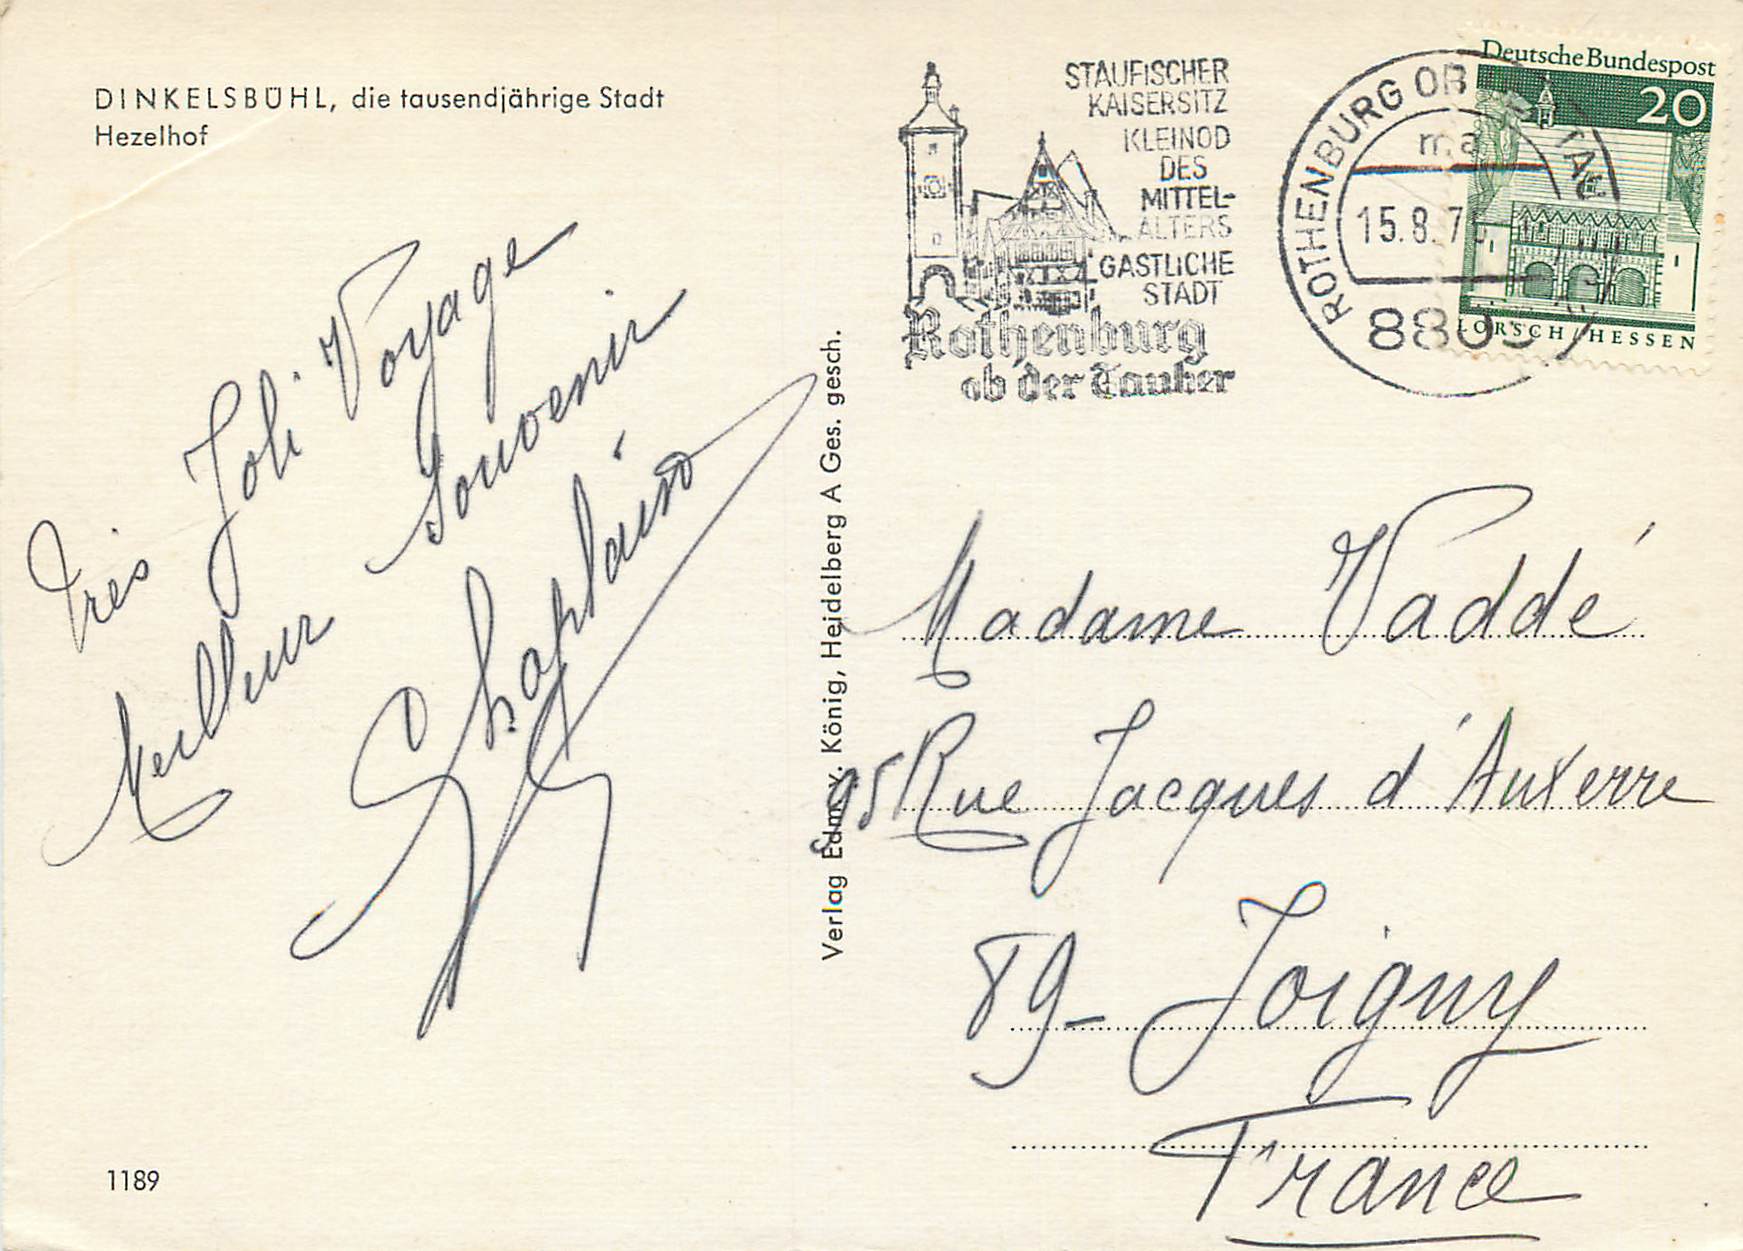 DINKELSBÜHL, die tausendjährige Stadt
Hezelhof
Très Joli Voyage
Meilleur Souvenir
Chaplain
1189
Verlag Edm. v. König, Heidelberg A Ges. gesch.
STAUFISCHER
KAISERSITZ
KLEINOD
DES
MITTEL-
ALTERS
GASTLICHE
STADT
Rothenburg
ob der Tauber
ROTHENBURG OB DER TAUBER
ma
15.8.7
8803
Deutsche Bundespost
20
LORSCH/HESSEN
Madame Vaddé
95 Rue Jacques d'Auxerre
89- Joigny
France